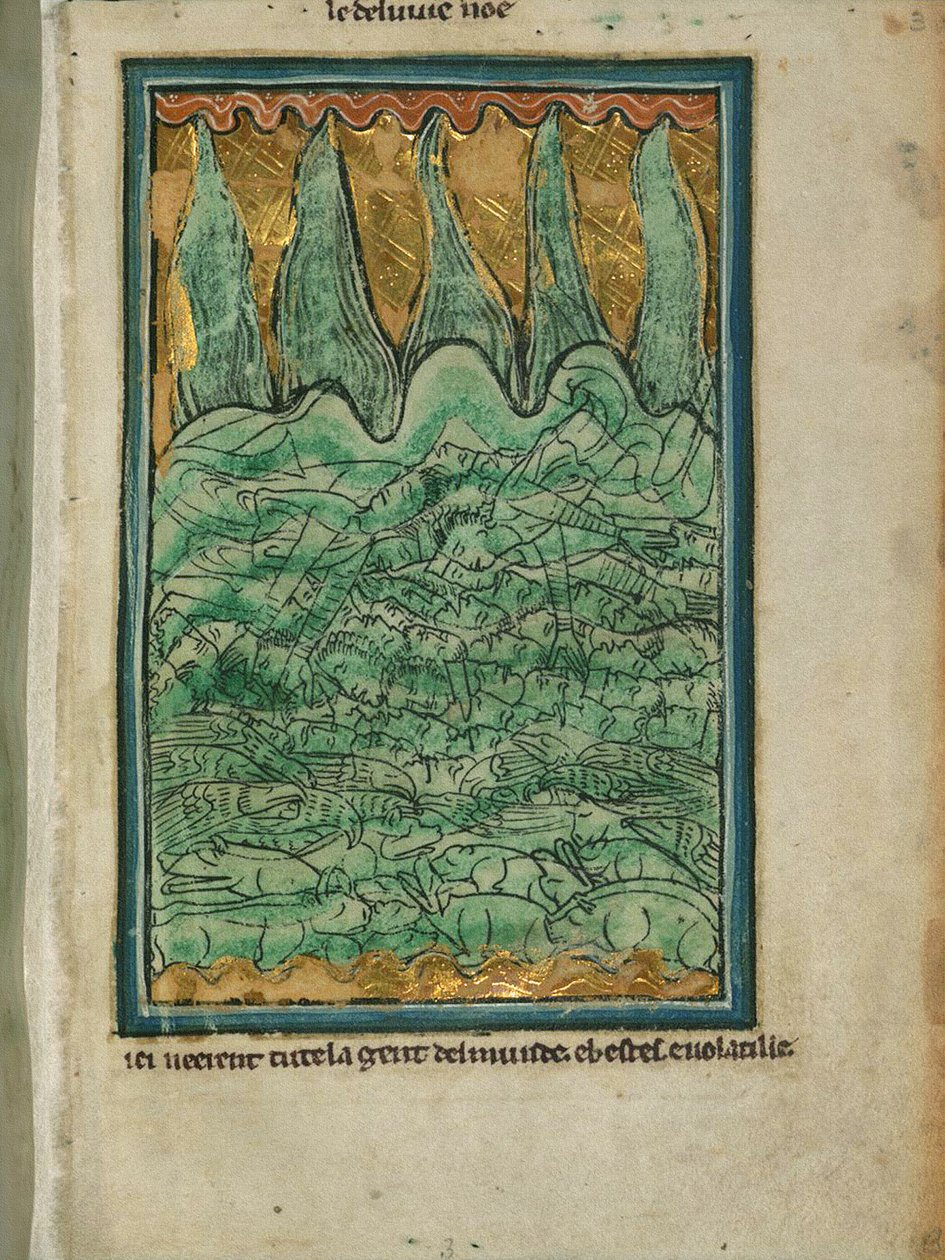 le deluuie noe
3
ici neerent tute la gent del munde. e bestes. e uolatilie.
3